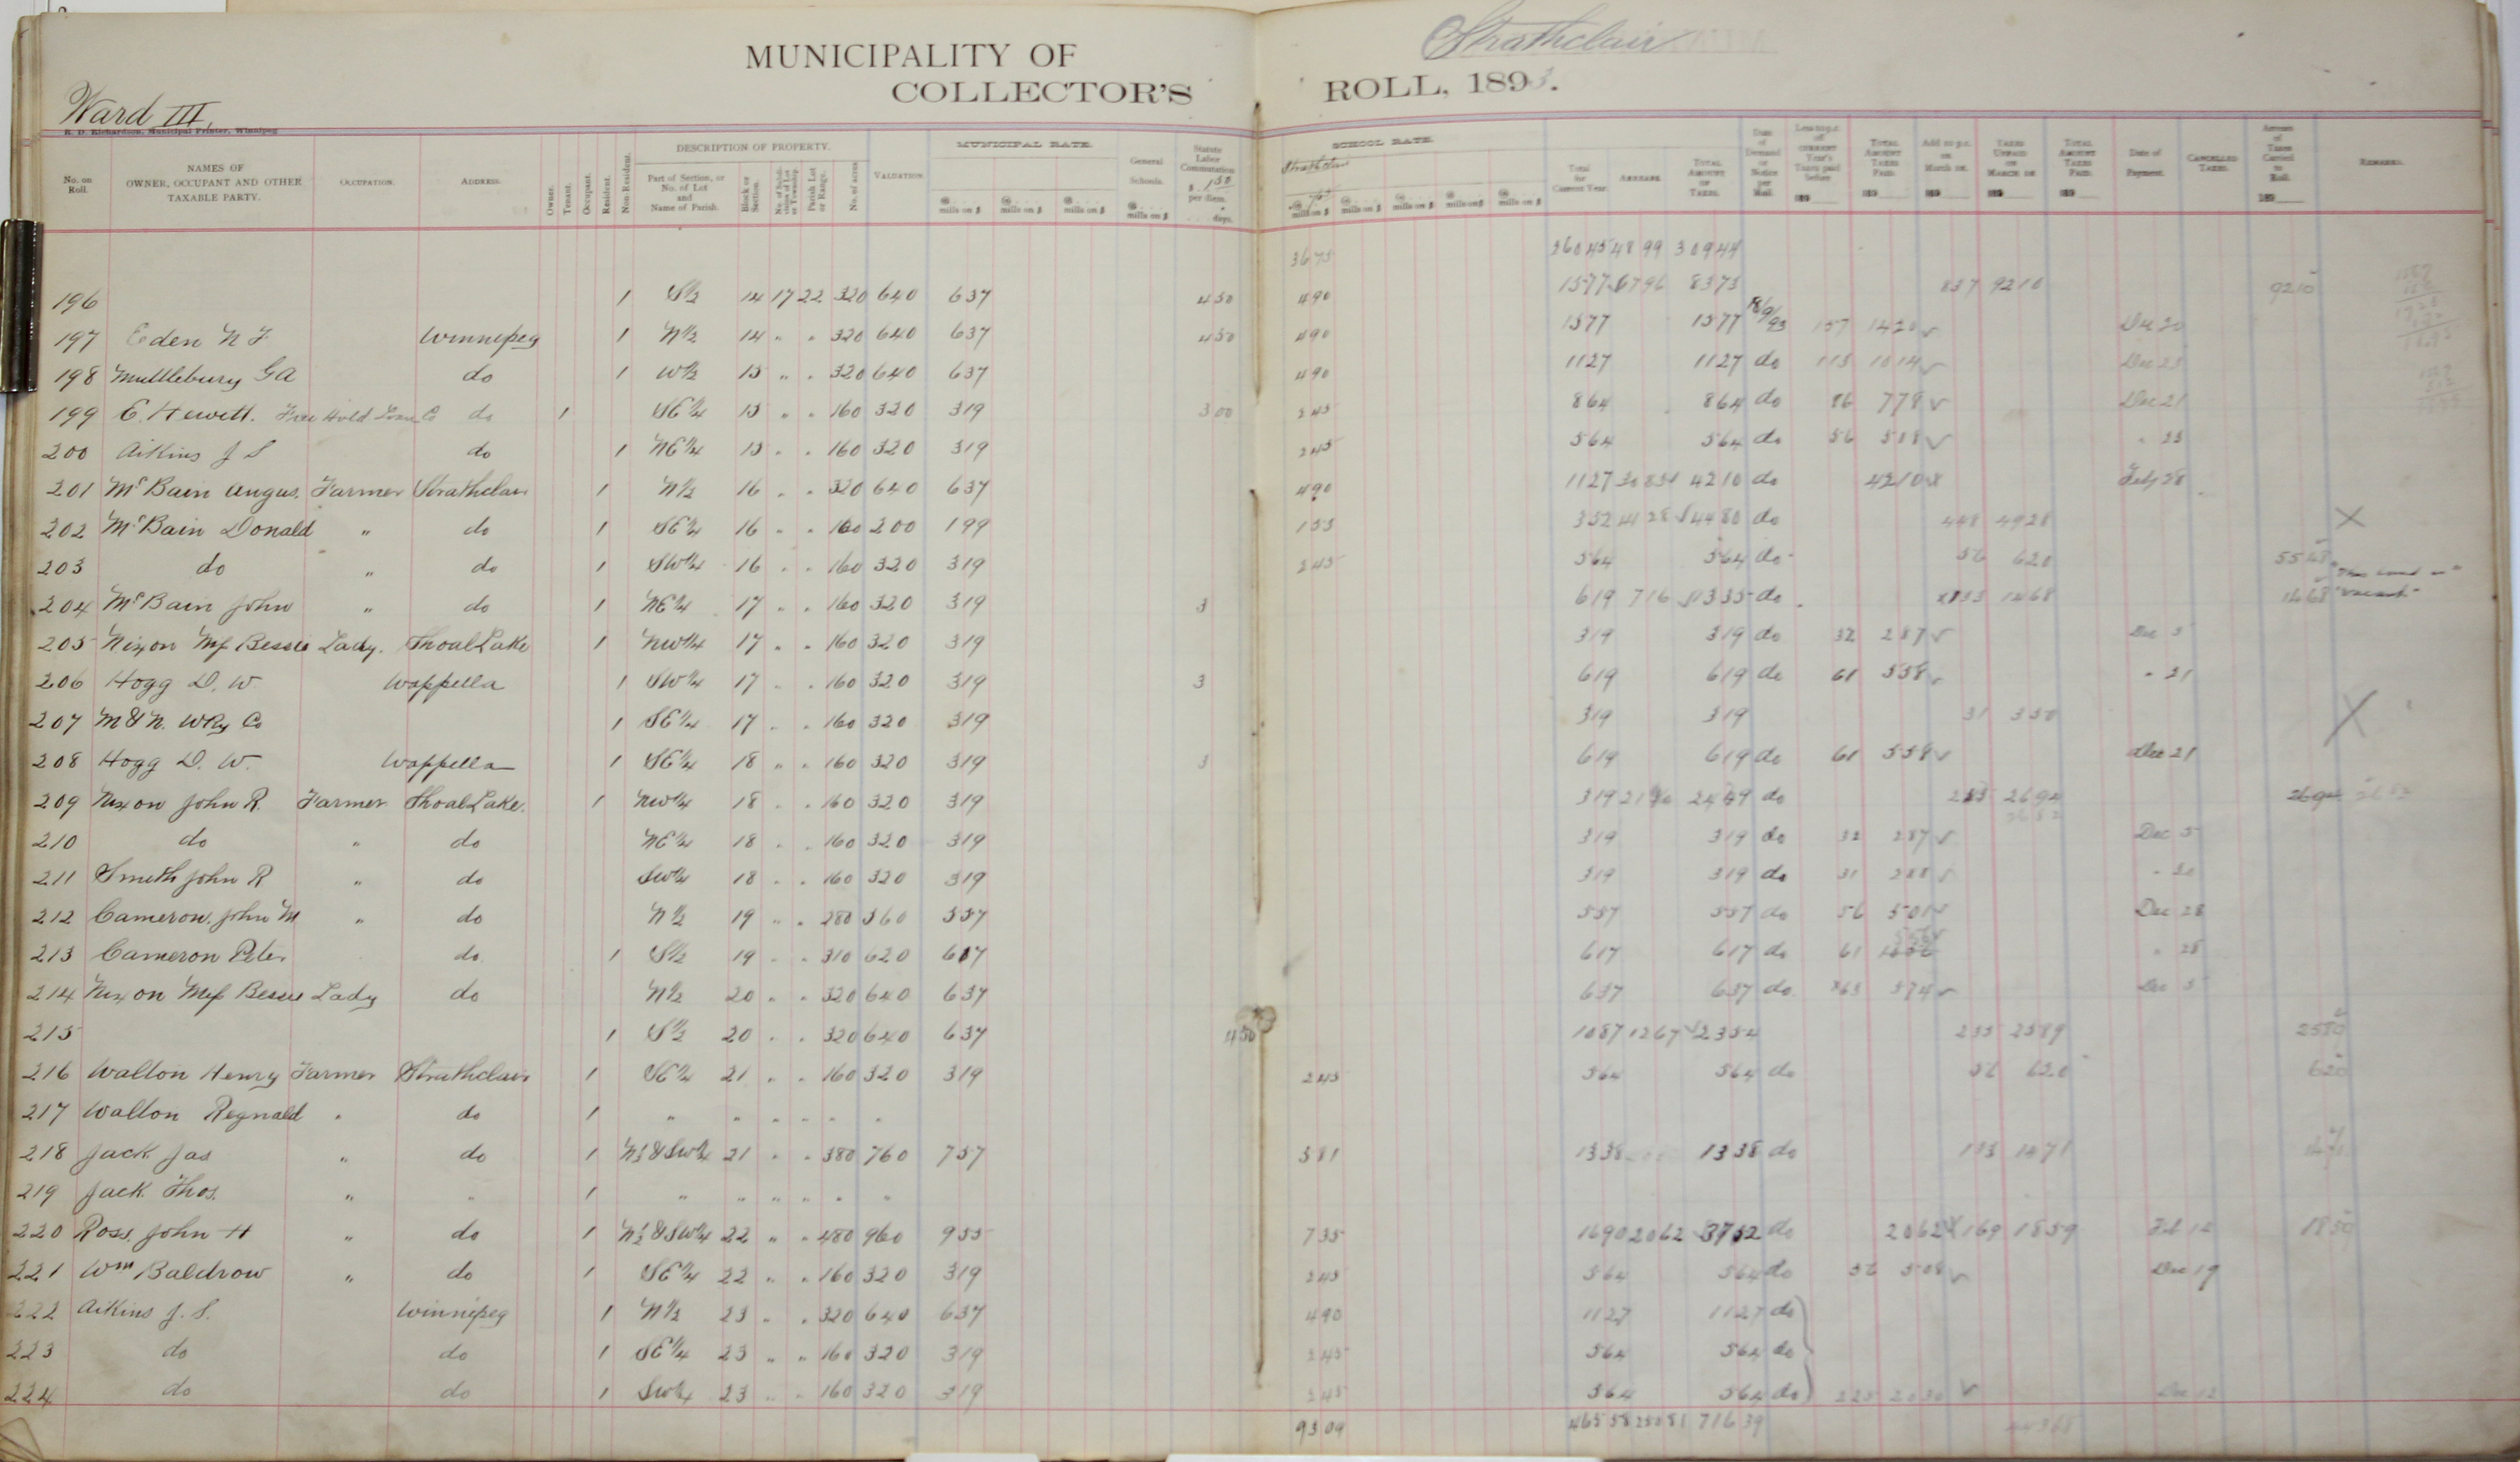 MUNICIPALITY OF Strathclair
COLLECTOR'S ROLL, 1893.
Ward III,
R. D. Richardson, Municipal Printer, Winnipeg
No. on Roll. NAMES OF OWNER, OCCUPANT AND OTHER TAXABLE PARTY. OCCUPATION. ADDRESS. Owner. Tenant. Occupant. Resident. Non Resident. DESCRIPTION OF PROPERTY. Part of Section, or No. of Lot and Name of Parish. Block or Section. Parish Lot or Range. No. of acres VALUATION. MUNICIPAL RATE. mills on $ mills on $ mills on $ General Schools. mills on $ Statute Labor Commutation per diem. days. SCHOOL RATE. Strathclair mills on $ mills on $ mills on $ mills on $ mills on $ Total for Current Year. ARREARS. TOTAL AMOUNT OF TAXES. Date of Demand or Notice per Mail. TOTAL AMOUNT TAXES PAID. TAXES UNPAID ON MARCH 1ST. TOTAL AMOUNT TAXES PAID. Date of Payment. CANCELLED TAXES. Amount of Taxes Carried to Roll. REMARKS.
3675 36045 4899 30944
196 1 S½ 14 17 22 320 640 637 450 490 1577 6796 8373 837 9210 9210
197 Eden N F Winnipeg 1 N½ 14 " " 320 640 637 450 490 1577 1577 18/9/93 157 1420 Dec 20
198 Muttlebury G A do 1 W½ 15 " " 320 640 637 490 1127 1127 do 113 1014 Dec 23
199 E. Hewett. Free Hold Loan Co do 1 SE¼ 15 " " 160 320 319 300 245 864 864 do 86 778 Dec 21
200 Aikins J S do 1 NE¼ 15 " " 160 320 319 245 564 564 do 56 508 " 23
201 McBain Angus. Farmer Strathclair 1 N½ 16 " " 320 640 637 490 1127 3083 4210 do 4210 Feby 28
202 McBain Donald " do 1 SE¼ 16 " " 160 200 199 153 352 4128 4480 do 448 4928 X
203 do " do 1 SW¼ 16 " " 160 320 319 245 564 564 do 56 620 5548
204 McBain John " do 1 NE¼ 17 " " 160 320 319 3 619 716 1335 do 133 1468 1468
205 Nixon Miss Bessie Lady. Shoal Lake 1 NW¼ 17 " " 160 320 319 319 319 do 32 287 Dec 5
206 Hogg D. W. Wappella 1 SW¼ 17 " " 160 320 319 3 619 619 do 61 558 " 21
207 M & N. W Ry Co 1 SE¼ 17 " " 160 320 319 319 319 31 350 X
208 Hogg D. W. Wappella 1 SE¼ 18 " " 160 320 319 3 619 619 do 61 558 Dec 21
209 Nixon John R. Farmer Shoal Lake. 1 NW¼ 18 " " 160 320 319 319 2449 do 2694 2694
210 do " do NE¼ 18 " " 160 320 319 319 319 do 32 287 Dec 5
211 Smith John R " do SW¼ 18 " " 160 320 319 319 319 do 31 288 " 20
212 Cameron. John M " do N½ 19 " " 280 560 557 557 557 do 56 501 Dec 28
213 Cameron Peter do. 1 S½ 19 " " 310 620 617 617 617 do 61 556 " 28
214 Nixon Miss Bessie Lady do N½ 20 " " 320 640 637 637 637 do. 63 574 Dec 5
215 1 S½ 20 " " 320 640 637 450 1087 1267 2354 235 2589 2589
216 Walton Henry Farmer Strathclair 1 SE¼ 21 " " 160 320 319 245 564 564 do 56 620 620
217 Walton Regnald " do 1 " " " " " "
218 Jack Jas " do 1 N½ & SW¼ 21 " " 380 760 757 581 1338 1338 do 133 1471 1471
219 Jack Thos. " " 1 " " " " " "
220 Ross. John H " do 1 N½ & SW¼ 22 " " 480 960 955 735 1690 2062 3752 do 2062 169 1859 Feb 12 1859
221 Wm Baldrow " do 1 SE¼ 22 " " 160 320 319 245 564 564 do 56 508 Dec 19
222 Aikins J. S. Winnipeg 1 N½ 23 " " 320 640 637 490 1127 1127 do
223 do do 1 SE¼ 23 " " 160 320 319 245 564 564 do
224 do do 1 SW¼ 23 " " 160 320 319 245 564 564 do 225 2030 Dec 12
9309 46558 25081 71639